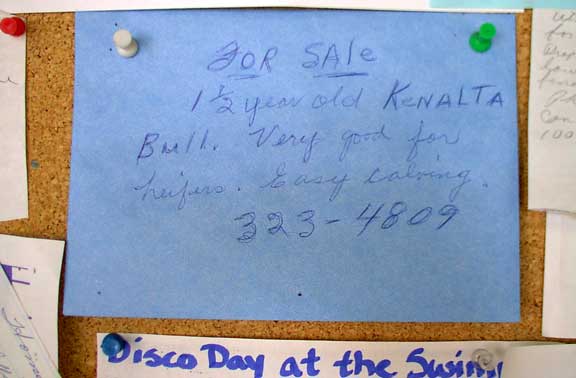 FOR SALe
1 1/2 year old KeNALTA
Bull. Very good for
heifers. Easy calving.
323-4809
Disco Day at the Swim